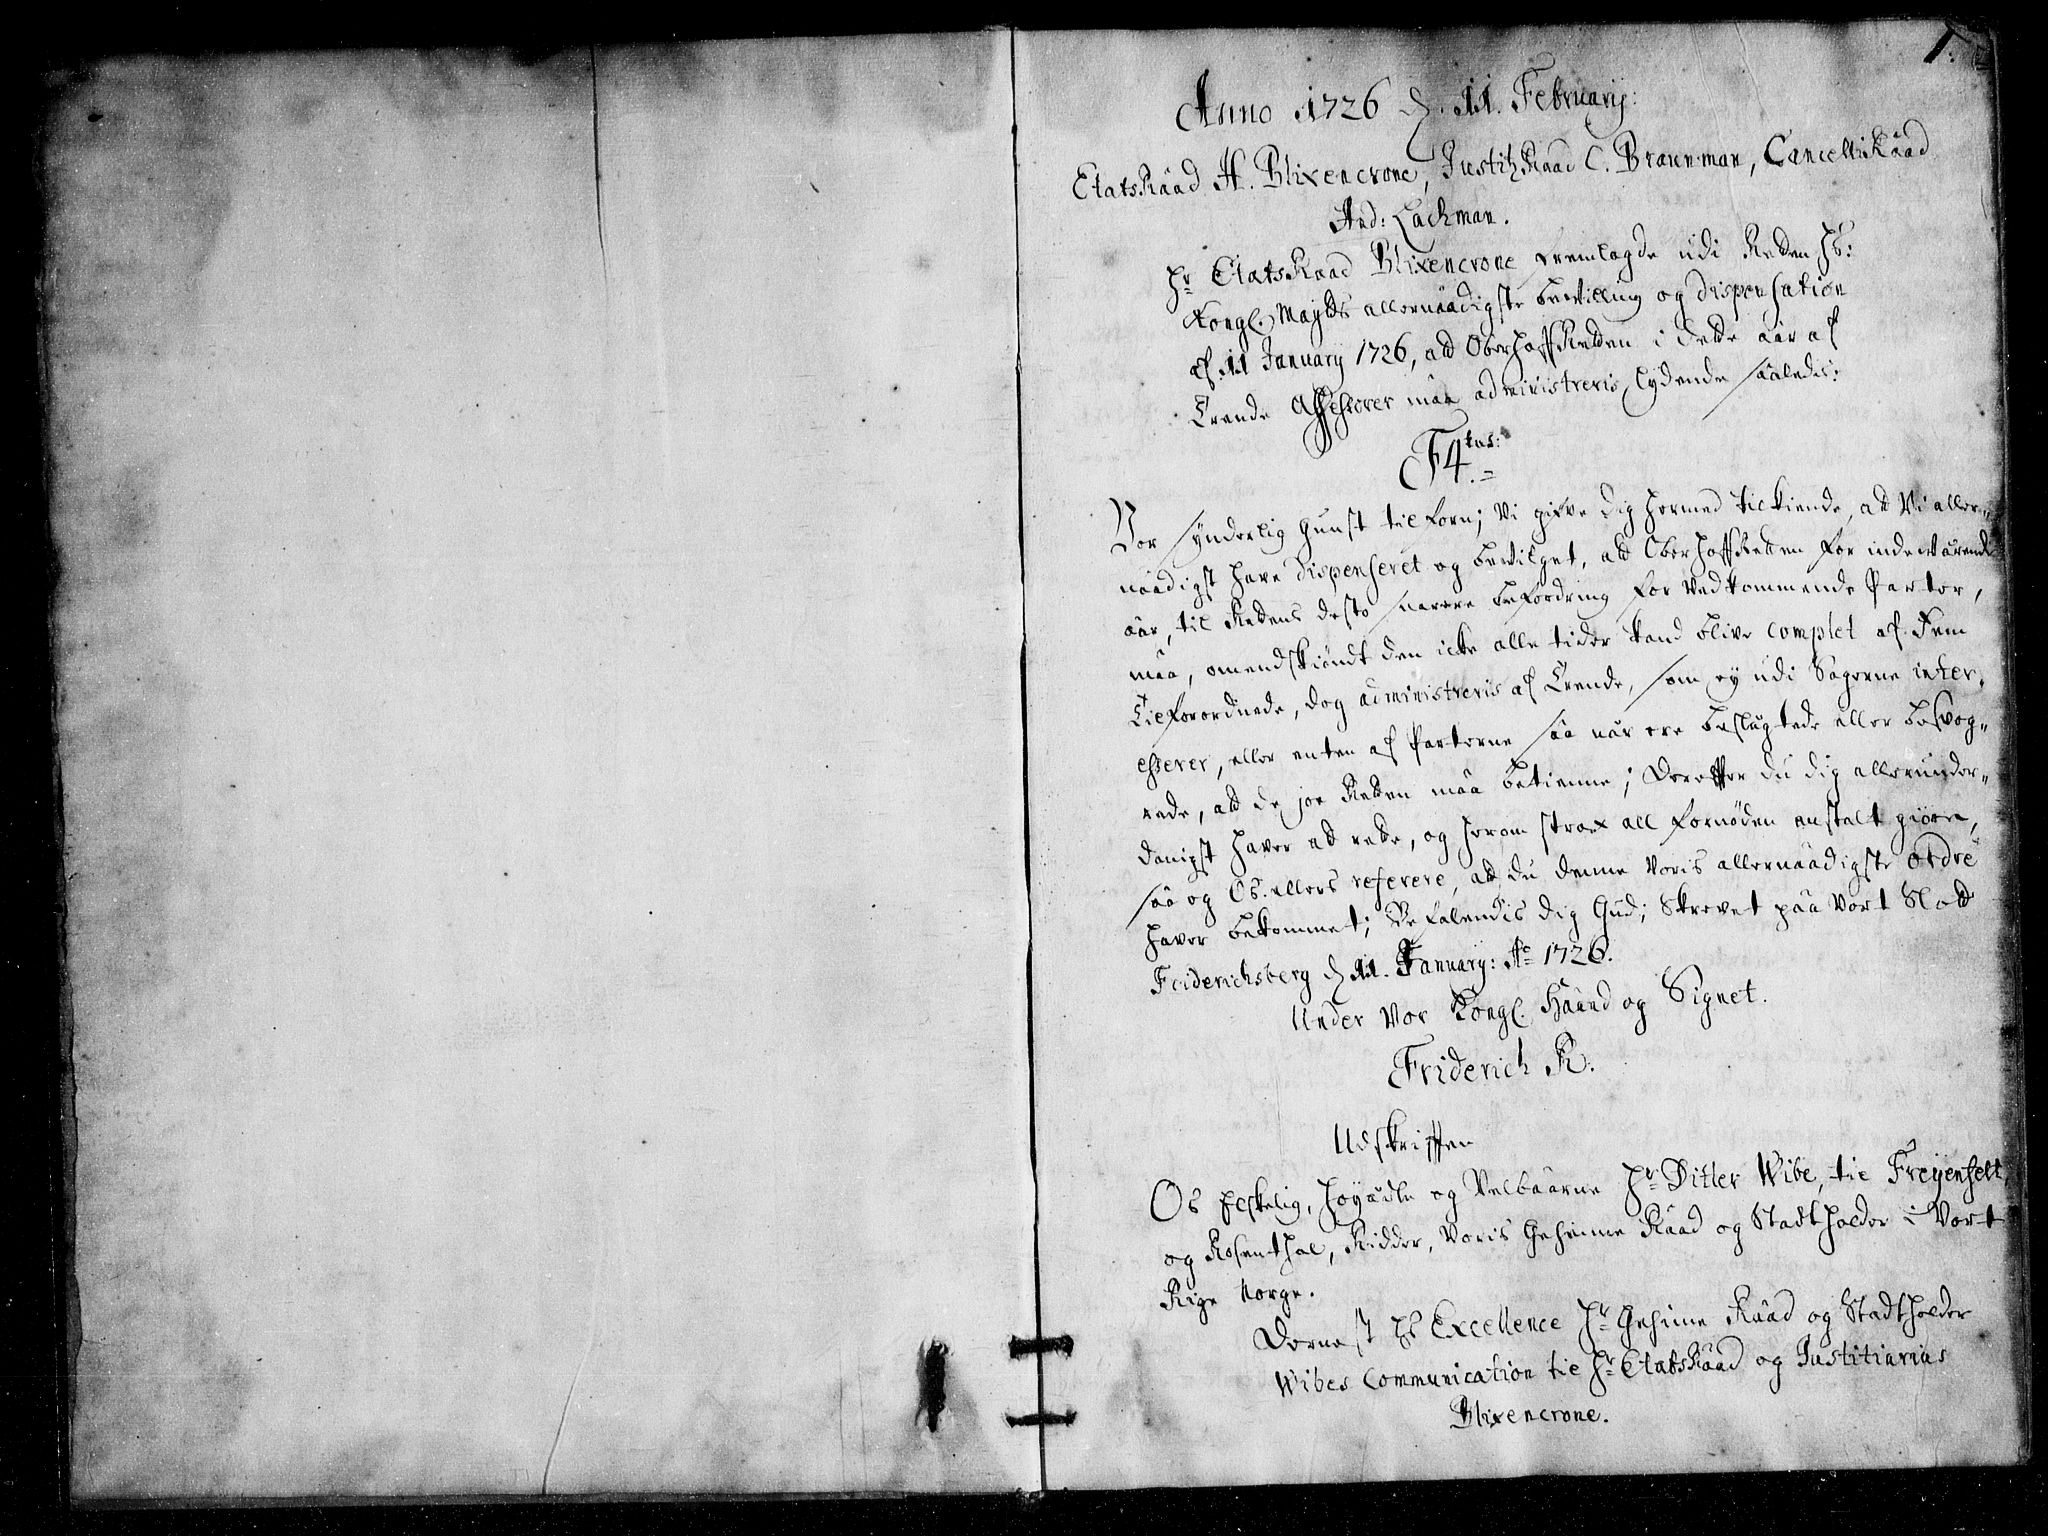 1.
Anno 1726 d. 11. Februarij:
EtatsRaad H. Blixencrone, JustitzRaad C. Braunman, CancelliRaad
And: Lachman.
Hr EtatsRaad Blixencrone fremlagde udi Retten Hs:
Kongl. Maytts allernaadigste bevilling og dispensation
af 11 January 1726, att OberhoffRetten i dette aar af
Trende Assessorer maa administreris, lydende saaledis:
F4tus:
Vor synderlig gunst tilforn; Vi give dig hermed tilkiende, at Vi aller-
naadigst have dispenseret og bevilget, att OberhoffRetten for indeværende
aar, til Rettens desto snarere befordring for Vedkommende Parter,
maa, omendskiøndt den icke alle tider kand blive complet af Fem
Tilforordnede, dog administreris af Trende, som ey udi Sagerne inter-
esserer, eller enten af Parterne saa nær ere beslugtede eller besvog-
rede, att de jo Retten maa betienne; Derefter du dig allerunder-
danigst haver at rette, og herom strax all fornøden anstalt giøre,
saa og Os ellers referere, at du denne Voris allernaadigste ordre
haver bekommet; Befalendis dig Gud; Skrevet paa Vort Slott
Friderichsberg d 11. January: Ao 1726.
Under Vor Kongl. Haand og Signet.
Friderich R.
Udskrifften
Os Elskelig, Høyædle og Velbaarne Hr Ditlev Wibe, til Freyenfelt
og Rosenthal, Ridder, Voris Geheime Raad og Stadtholder i Vort
Rige Norge.
Dernest Hs Excellence Hr Geheime Raad og Stadtholder
Wibes Communication til Hr EtatsRaad og Justitiarius
Blixencrone.